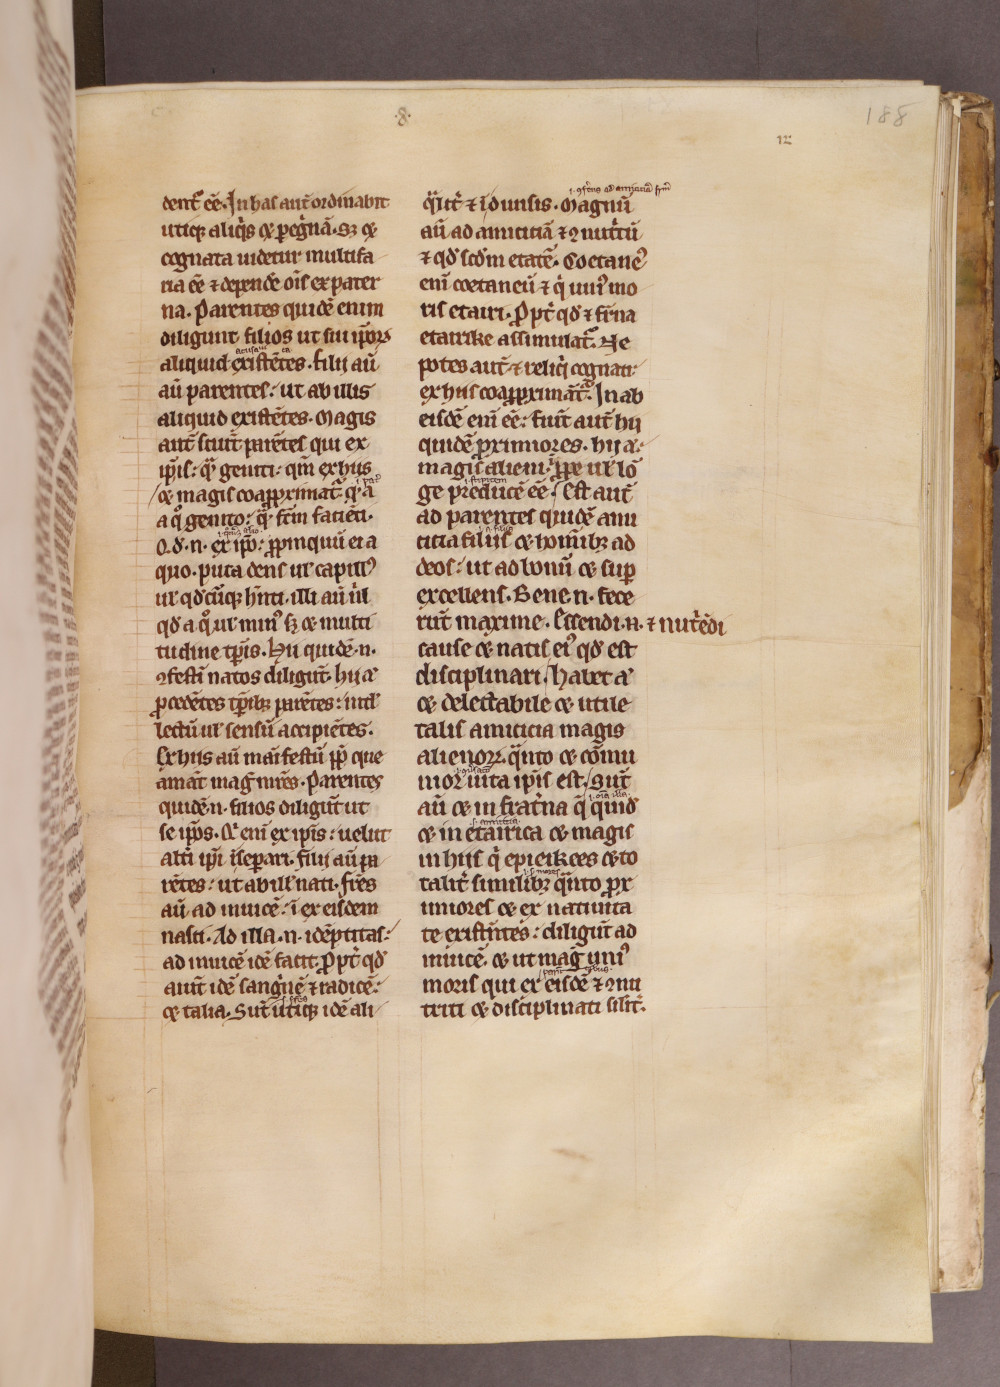 ·8·
188
dent᷑ eē. In has aut̄ ordinabit
utiqꝫ aliq̄s ⁊ p̱eg̃nā. Sꝫ ⁊
cognata uidetur multifa
ria eē ⁊ dependē oīs ex pater
na. Parentes quidē enim
diligunt filios ut sui ip̄oꝝ
aliquid existētes. filii aū
aū parentes: ut ab illis
aliquid existētes. Magis
aut̄ sciūt parētes qui ex
ip̄is: q̄ȝ geniti: qm̄ ex hiis
⁊ magis coapp̱ximat᷑ q̄ a
a qͦ genito: q̄ȝ fc̄m faciēti.
Qd̄.n. ex ip̄o: ꝓpinquū ei a
quo. puta dens ul̄ capill᷒
ul̄ qd̄cūqꝫ hn̄ti. illi aū ūl
qd̄ a qͦ ul̄ min᷒ sꝫ ⁊ multi
tudine tp̄is. Hii quidē.n.
ꝯfestī natos diligūt. hii ⁊
ꝓcedētes tp̄ibꝫ parētes: intl̄
lectū ul̄ sensū accipiētes.
Ex hiis aū māifestū ꝓp̄ que
amāt mag̃ mr̄es. Parentes
quidē.n. filios diligūt ut
se ip̄os. Q̄ enī ex ip̄is: uelut
alt̄i ip̄i īsepari. filii aū pa
rētes: ut ab ill᷒ nati. fr̄es
aū ad inuicē: ī ex eisdem
nasci. Ad illa.n. idēptitas:
ad inuicē idē facit. Ꝓpt̄ qd̄
aiūt idē sang̃nē ⁊ radicē:
⁊ talia. Sūt utiqꝫ idē ali
q̄lit̄ ⁊ ī diuisis. Magnū
aū ad amicitiā ⁊ ꝯnutritū
⁊ qd̄ sc̄dm etatē. Coetane᷒
enī coetaneū ⁊ q̄ uni᷒ mo
ris etairi. Ꝓpt̄ qd̄ ⁊ fr̄na
etairike assimulat᷑. Ne
potes aut̄ ⁊ reliq̄ cognati:
ex hiis coapp̱ximāt᷑. In ab
eisdē enī eē: fiūt aut̄ hii
quidē ꝓximiores. hii ⁊:
magis alieni: ꝓpe ul̄ lō
ge producē eē. Est aut̄
ad parentes quidē ami
citia filiis ⁊ hoīmibꝫ ad
deos: ut ad bonū ⁊ sup̱
excellens. Bene.n. fece
rūt maxime. Essendi.n. ⁊ nut̄iēdi
cause ⁊ natis ei᷒ qd̄ est
disciplinari. habet ⁊
⁊ delectabile ⁊ utile
talis amicicia magis
alienoꝝ. q̄nto ⁊ cōmu
nior uita ip̄is est. Sūt
aū ⁊ in frat̄na q̄ quid̄
⁊ in etairica ⁊ magis
in hiis q̄ epieikees ⁊ to
talit̄ similibꝫ q̄nto ꝓx
imiores ⁊ ex natiuita
te exist̄ntes: diligūt ad
inuicē. ⁊ ut mag̃ uni᷒
moris qui ex eisdē ⁊ ꝯnu
triti ⁊ disciplinati silīt̄.